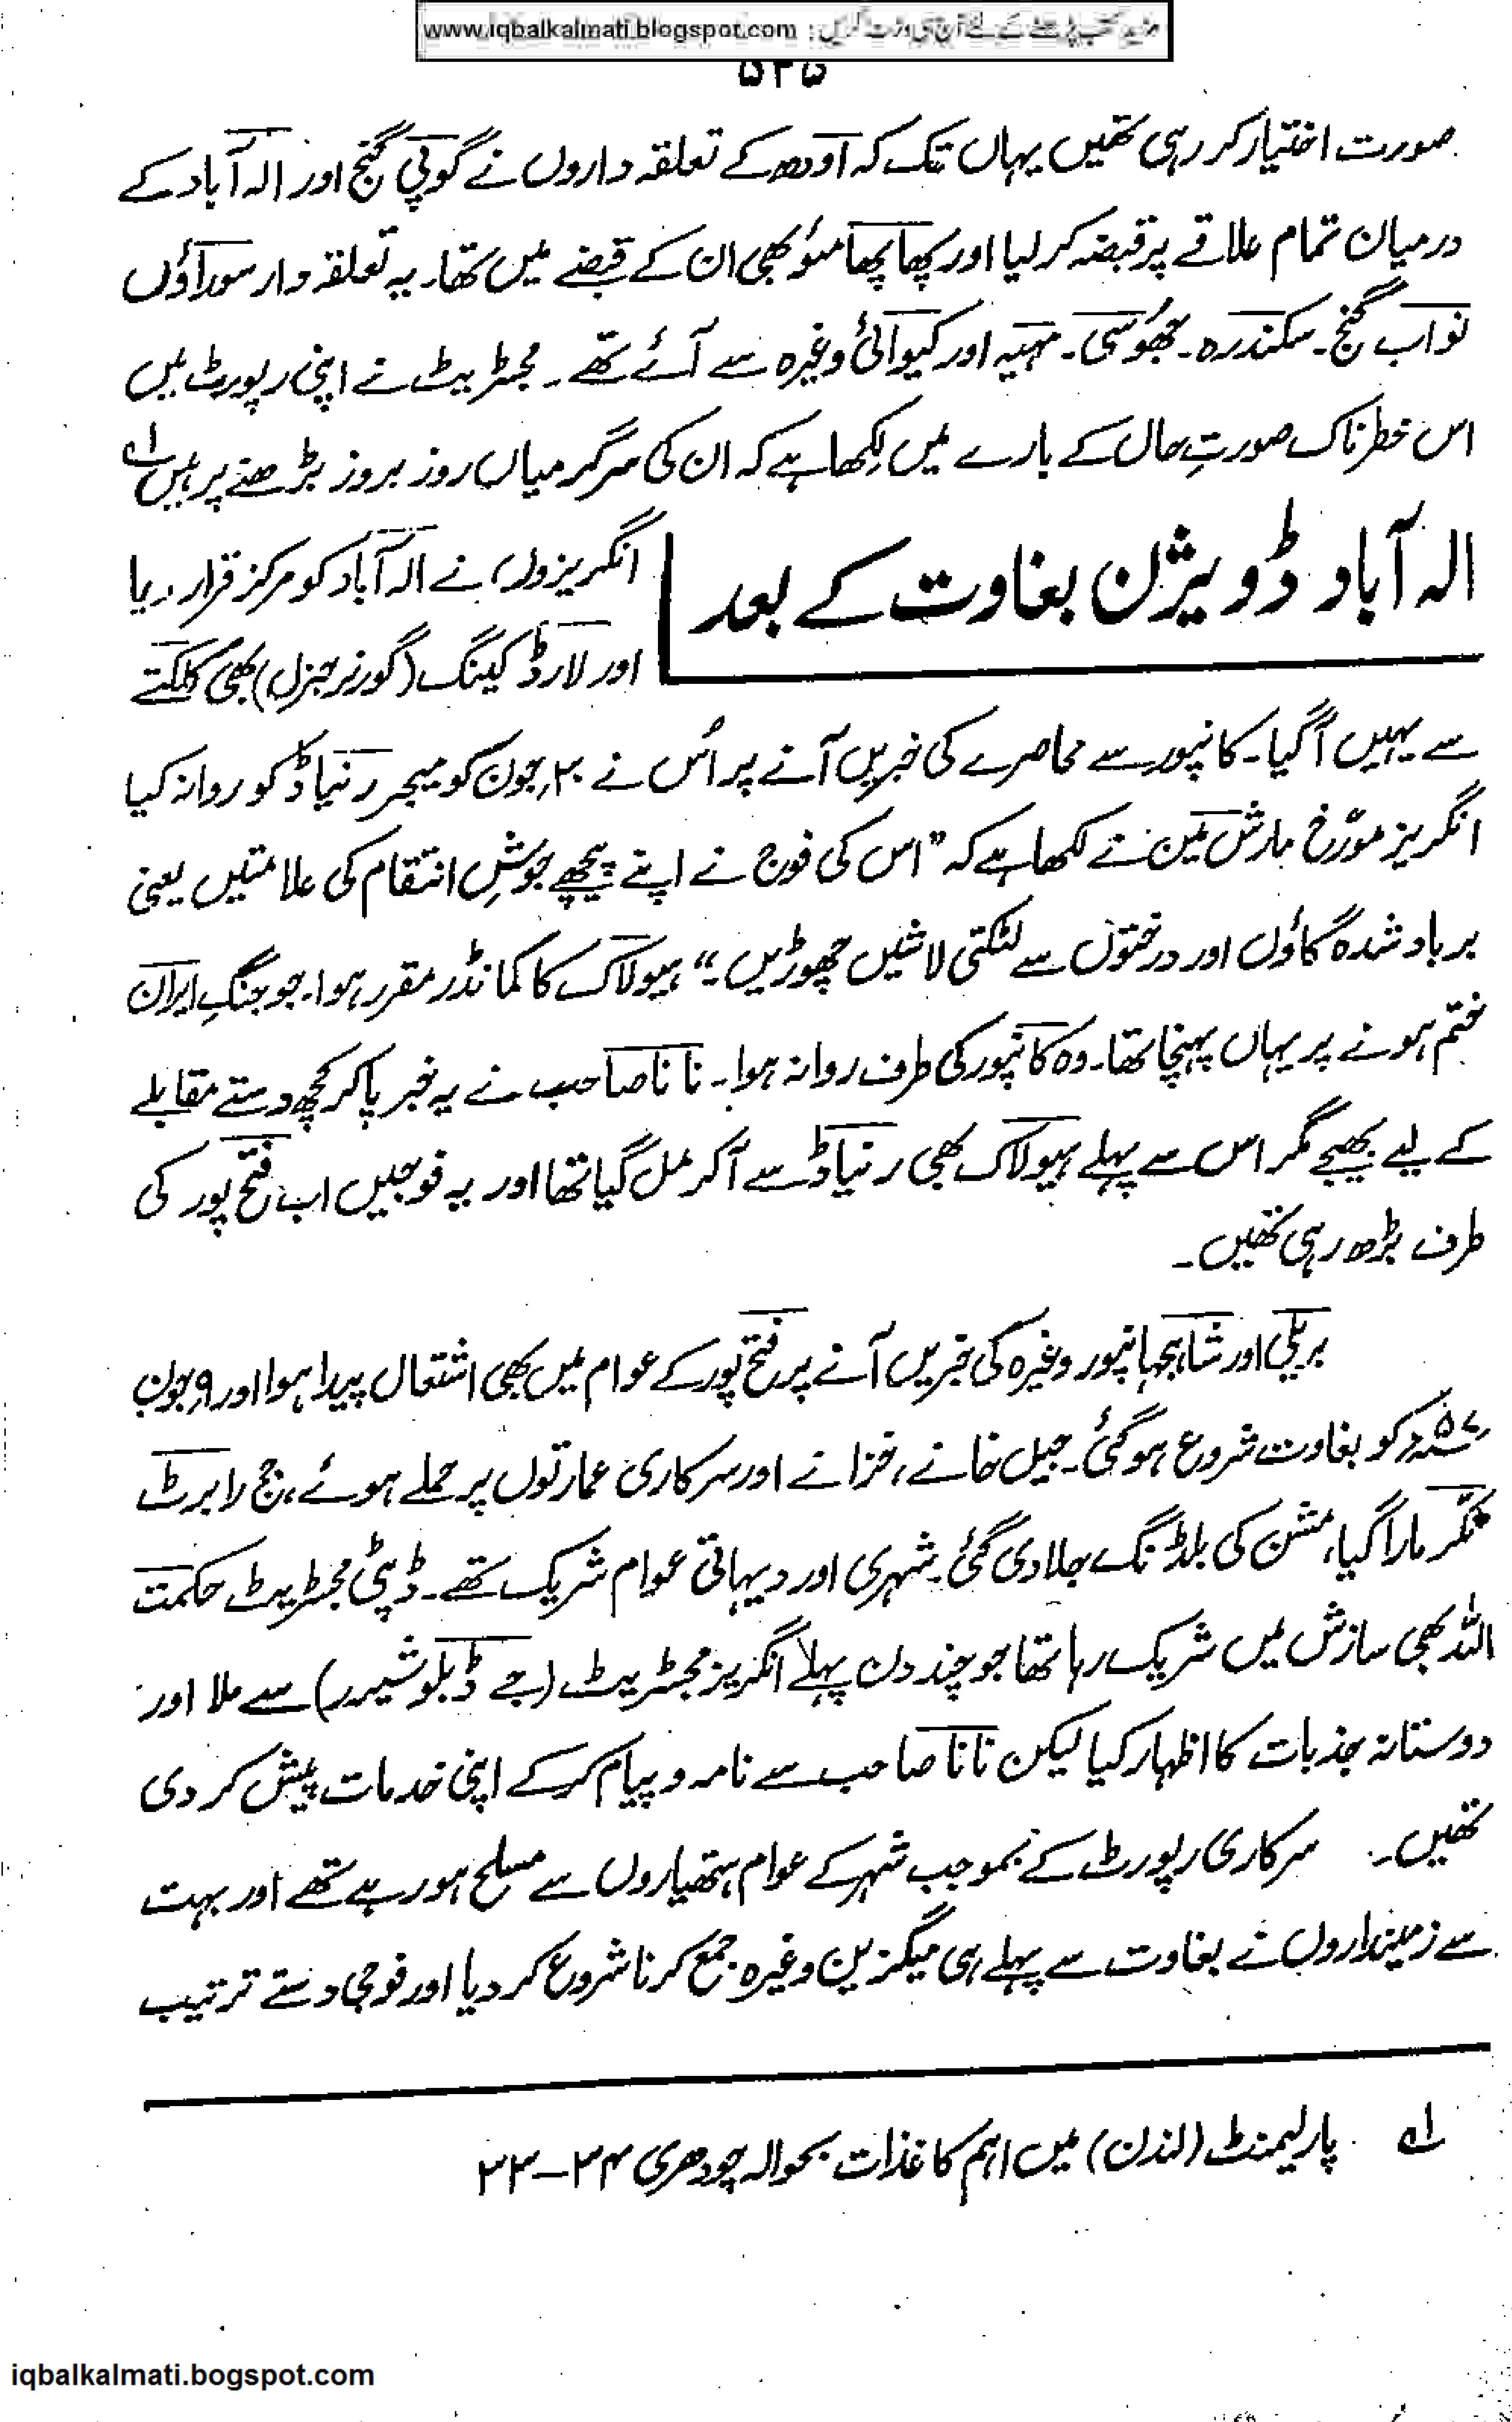 مزید کتب پڑھنے کے لئے آج ہی وزٹ کریں : www.iqbalkalmati.blogspot.com
۵۲۵
صورت اختیار کر رہی تھیں یہاں تک کہ اودھ کے تعلقہ داروں نے گوپی گنج اور الہ آباد کے
درمیان تمام علاقے پر قبضہ کر لیا اور پھاپھامئو بھی ان کے قبضے میں تھا۔ یہ تعلقہ دار سوراؤں
نواب گنج۔ سکندرہ۔ جھوسی۔ مہیہ اور کیوائی وغیرہ سے آئے تھے۔ مجسٹریٹ نے اپنی رپورٹ میں
اس خطرناک صورتِ حال کے بارے میں لکھا ہے کہ ان کی سرگرمیاں روز بروز بڑھنے پر ہیں ۱ے
الہ آباد ڈویژن بغاوت کے بعد
انگریزوں نے الہ آباد کو مرکز قرار دیا
اور لارڈ کیننگ (گورنر جنرل) بھی کلکتے
سے یہیں آ گیا۔ کانپور سے محاصرے کی خبریں آنے پر اُس نے ۳۰ جون کو میجر رنیاڈ کو روانہ کیا
انگریز مورّخ مارش مین نے لکھا ہے کہ ”اس کی فوج نے اپنے پیچھے جوشِ انتقام کی علامتیں یعنی
برباد شدہ گاؤں اور درختوں سے لٹکتی لاشیں چھوڑیں۔“ ہیولاک کا کمانڈر مقرر ہوا۔ جو جنگِ ایران
ختم ہونے پر یہاں پہنچا تھا۔ وہ کانپور کی طرف روانہ ہوا۔ نانا صاحب نے یہ خبر پا کر کچھ دستے مقابلے
کے لیے بھیجے مگر اس سے پہلے ہیولاک بھی رنیاڈ سے آ کر مل گیا تھا اور یہ فوجیں اب فتح پور کی
طرف بڑھ رہی تھیں۔
بریلی اور شاہجہانپور وغیرہ کی خبریں آنے پر فتح پور کے عوام میں بھی اشتعال پیدا ہوا اور ۹ جون
۵۷ء کو بغاوت شروع ہو گئی۔ جیل خانے، خزانے اور سرکاری عمارتوں پر حملے ہوئے، جج رابرٹ
ٹکّر مارا گیا، مشن کی بلڈنگ جلا دی گئی۔ شہری اور دیہاتی عوام شریک تھے۔ ڈپٹی مجسٹریٹ حکمت
اللہ بھی سازش میں شریک رہا تھا جو چند دن پہلے انگریز مجسٹریٹ (جے ڈبلو شیرر) سے ملا اور
دوستانہ جذبات کا اظہار کیا لیکن نانا صاحب سے نامہ و پیام کر کے اپنی خدمات پیش کر دی
تھیں۔ سرکاری رپورٹ کے بموجب شہر کے عوام ہتھیاروں سے مسلح ہو رہے تھے اور بہت
سے زمینداروں نے بغاوت سے پہلے ہی میگزین وغیرہ جمع کرنا شروع کر دیا اور فوجی دستے ترتیب
۱ے پارلیمنٹ (لندن) میں اہم کاغذات بحوالہ چودھری ۳۴–۳۳
iqbalkalmati.bogspot.com